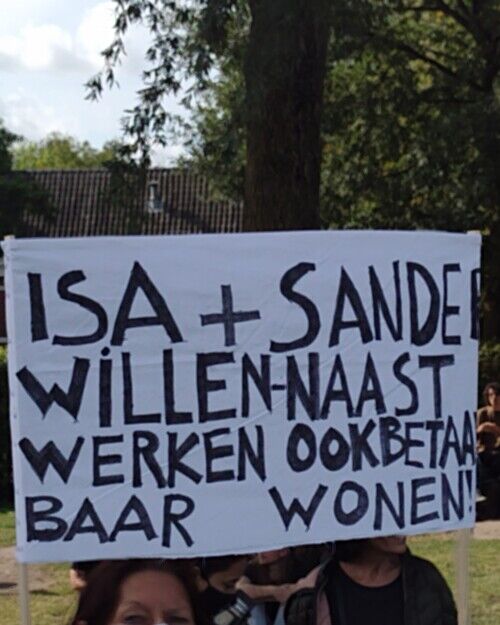 ISA + SANDER
WiLLEN-NAAST
WERKEN OOKBETAA
BAAR WONEN!